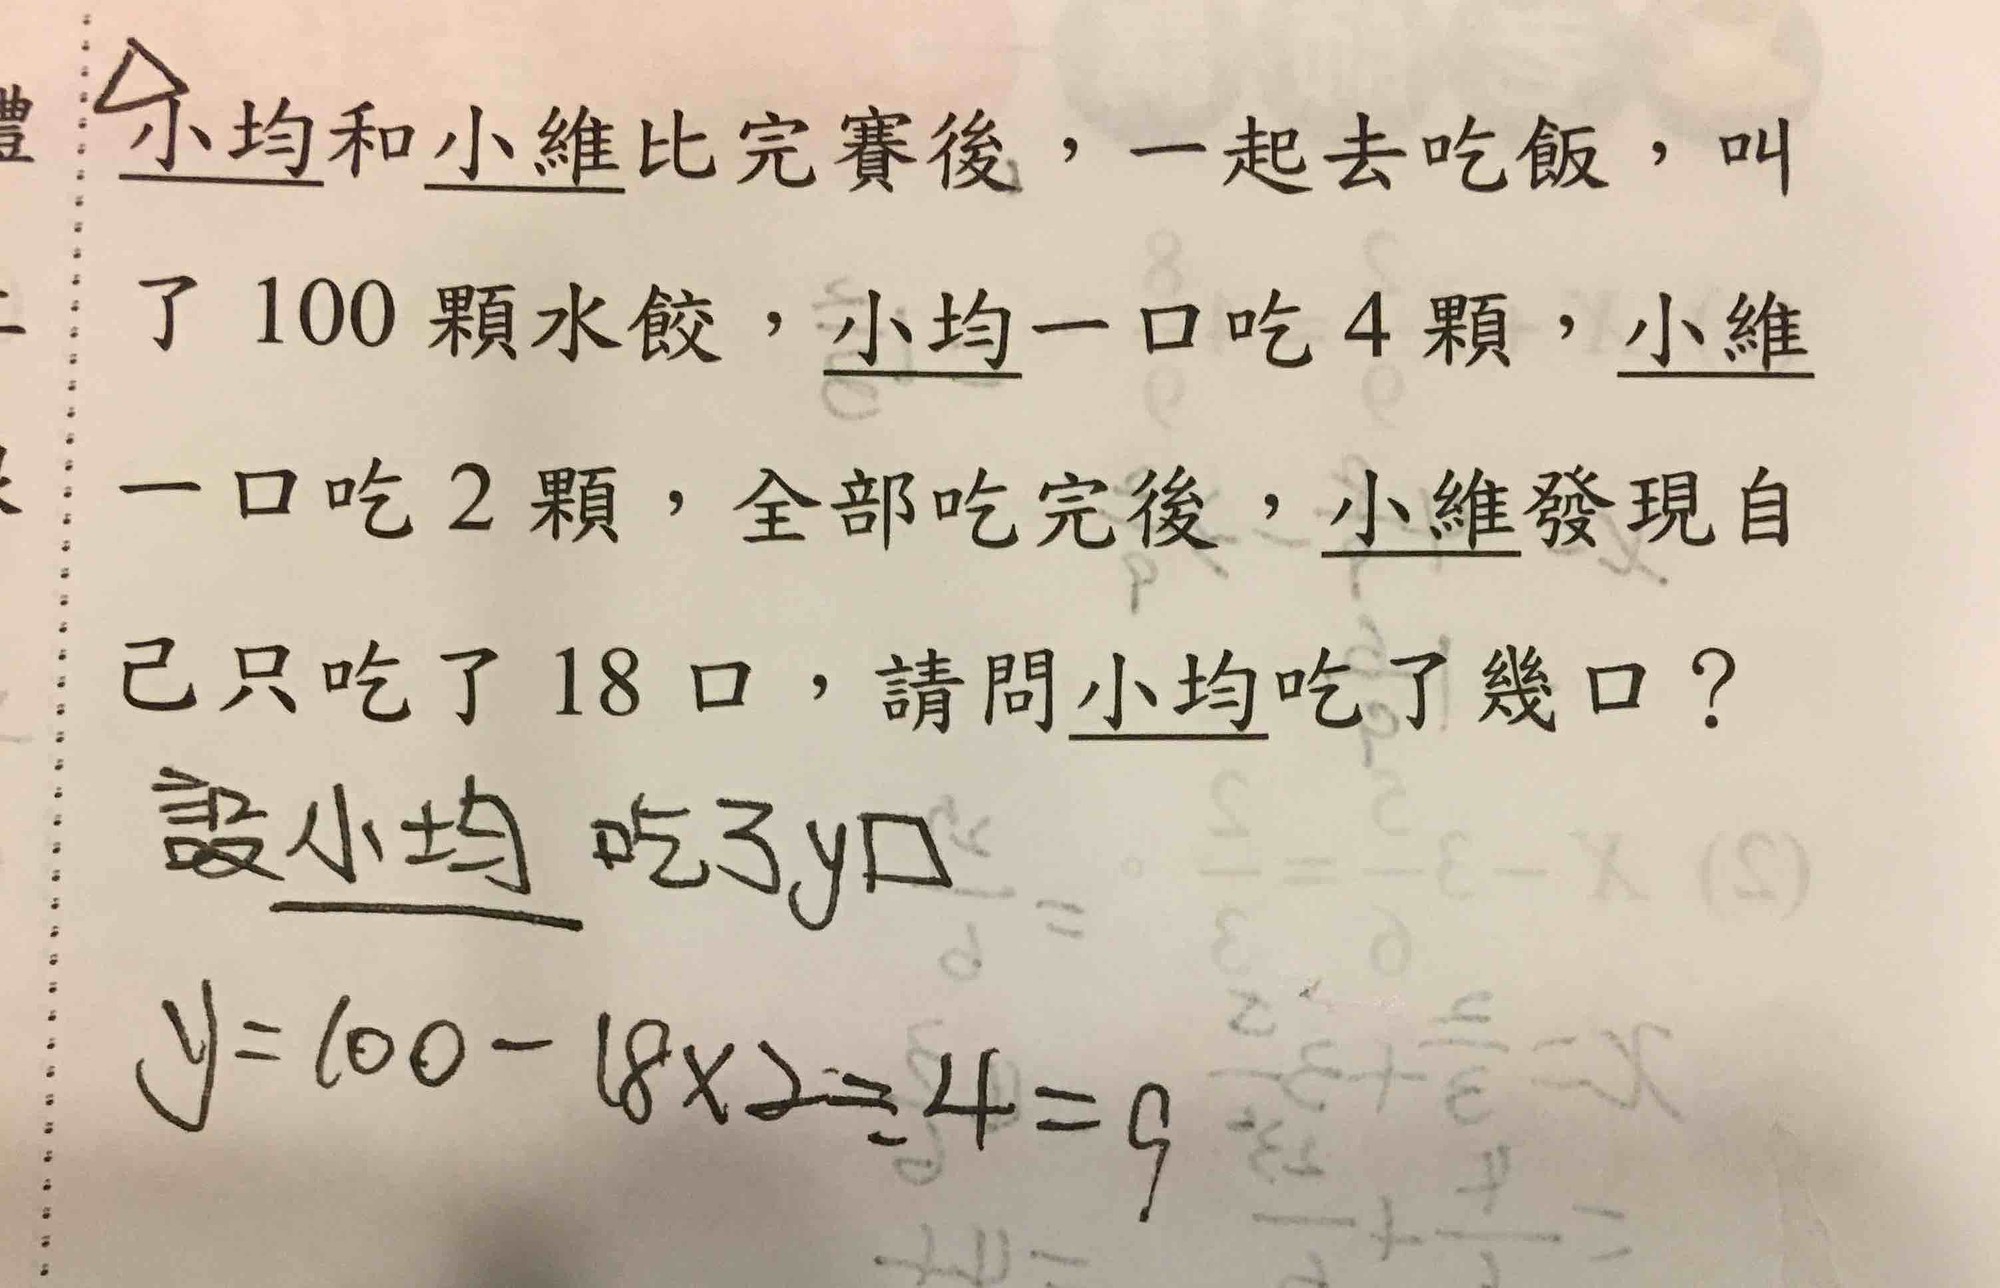 小均和小維比完賽後，一起去吃飯，叫
了 100 顆水餃，小均一口吃 4 顆，小維
一口吃 2 顆，全部吃完後，小維發現自
己只吃了 18 口，請問小均吃了幾口？
設小均 吃了y口
y=100-18×2÷4=9